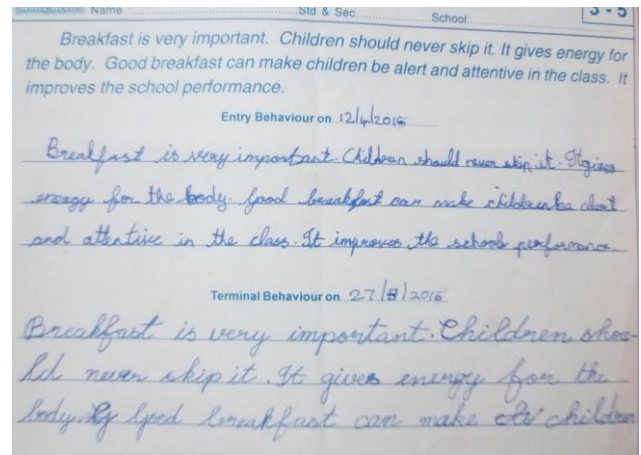 Name Std & Sec School 3 - 5
Breakfast is very important. Children should never skip it. It gives energy for
the body. Good breakfast can make children be alert and attentive in the class. It
improves the school performance.
Entry Behaviour on 12/4/2016
Breakfast is very important. Children should never skip it. It gives
energy for the body. Good breakfast can make children be alert
and attentive in the class. It improves the school performance.
Terminal Behaviour on 27/ /2016
Breakfast is very important. Children shou-
ld never skip it. It gives energy for the
body. Good breakfast can make children